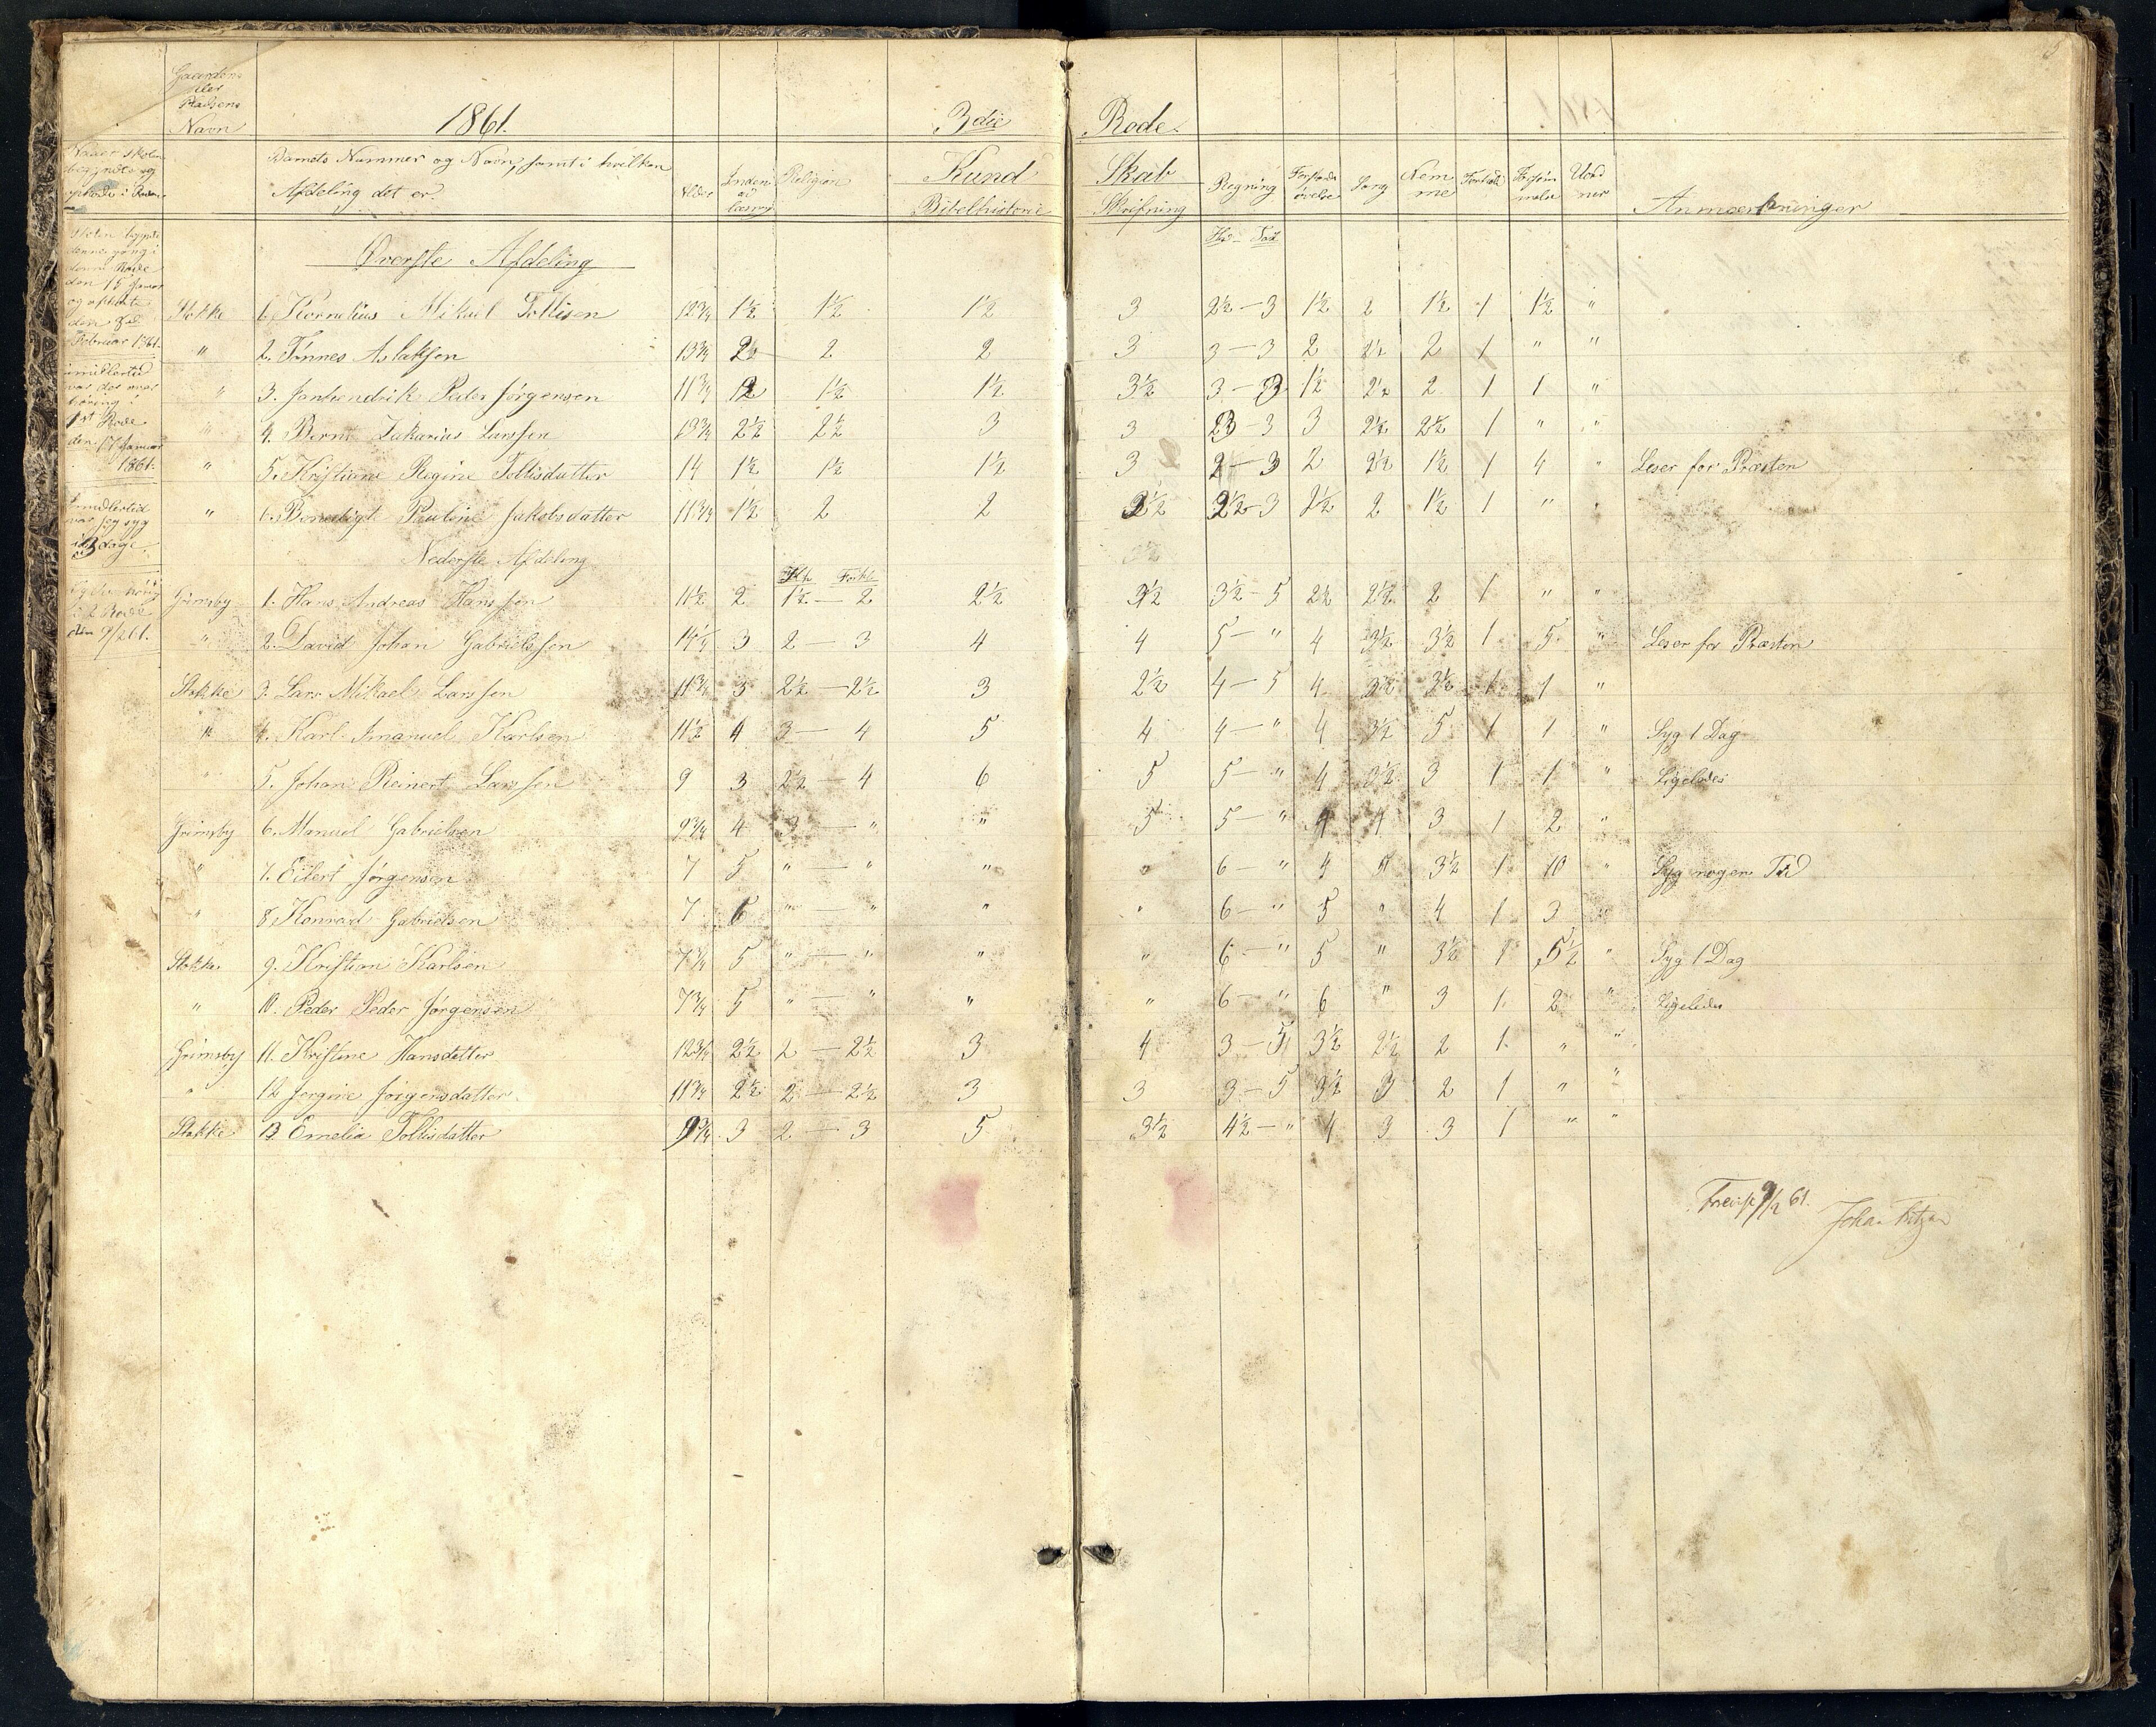 Gaardens
eller
Pladsens
Navn 1861. 3die Rode.
Naaar skolen
begyndte og
ophørte i Roden
Barnets Nummer og Navn, samt i hvilken
Afdeling det er. Alder Inden læsning Religion Kund Skab Regning Forstands øvelse Sang Nemme Forhold Forsømmelse Uord ner Anmærkninger
Bibelhistorie Skrifning
Skolen begynte
denne gang i
denne Rode
den 15 Januar
og ophørte
den
Februar 1861.
imidlertid
var der over
høring i
1st Rode
den 17 Januar
1861.
imidlertid
var jeg syg
i 3 dage.
i 2 Rode
den 9/2 61.
Øverste Afdeling
Stokke 1. Kornelius Mikael Tollisen 12 3/4 1½ 1½ 1½ 3 2½ – 3 1½ 2 1½ 1 1½ "
" 2. Tønnes Aslaksen 13 3/4 2½ 2 2 3 3 – 3 2 2½ 2 1 " "
" 3. Janhendrik Peder Jørgensen 11 3/4 2 1½ 1½ 3½ 3 – 3 1½ 2½ 2 1 1 "
" 4. Bernt Zakarias Larssen 13 3/4 2½ 2½ 3 3 3 – 3 3 2½ 2½ 1 " "
" 5. Kristiane Regine Tollisdatter 14 1½ 1½ 1½ 3 2 – 3 2 2½ 1½ 1 4 " Leser for Præsten
" 6. Benedigt Pauline Jakobsdatter 11 3/4 1½ 2 2 2½ 2½ – 3 2½ 2 1½ 1 " "
Nederste Afdeling
Grimsby 1. Hans Andreas Hanssen 11½ 2 1½ – 2 2½ 3½ 3½ – 5 2½ 2½ 2 1 " "
" 2. David Johan Gabrielssen 14¼ 3 2 – 3 4 4 5 – " 4 3½ 3½ 1 5 " Leser for Præsten
Stokke 3. Lars Mikael Larssen 11 3/4 3 2½ – 2½ 3 2½ 4 – 5 4 3½ 3½ 1 1 "
" 4. Karl Imanuel Karlsen 11½ 4 3 – 4 5 4 4 – " 4 3½ 5 1 1 " Syg 1 Dag
" 5. Johan Reinert Larssen 9 3 2½ – 4 6 5 5 – " 4 3½ 3 1 1 " Ligeledes
Grimsby 6. Manuel Gabrielsen 9 3/4 4 3 – " " 5 5 – " 4 4 3 1 2 "
" 7. Eilert Jørgensen 7 5 " – " " " 6 – " 4 " 3½ 1 10 " Syg nogen Tid
" 8. Konrad Gabrielsen 7 6 " – " " " 6 – " 5 " 4 1 3 "
Stokke 9. Kristian Karlsen 7 3/4 5 " – " " " 6 – " 5 " 3½ 1 5½ " Syg 1 Dag
" 10. Peder Peder Jørgensen 7 3/4 5 " – " " " 6 – " 6 " 3 1 2 " Ligeledes
Grimsby 11. Kristine Hansdatter 12 3/4 2½ 2 – 2½ 3 4 3 – 5 3½ 2½ 2 1 " "
" 12. Jørgine Jørgensdatter 11 3/4 2½ 2 – 2½ 3 3 3 – 5 3½ 3 2 1 " "
Stokke 13. Emelia Tollisdatter 9 3/4 3 2 – 3 5 3½ 4½ – " 4 3 3 1 " "
9/2 61.